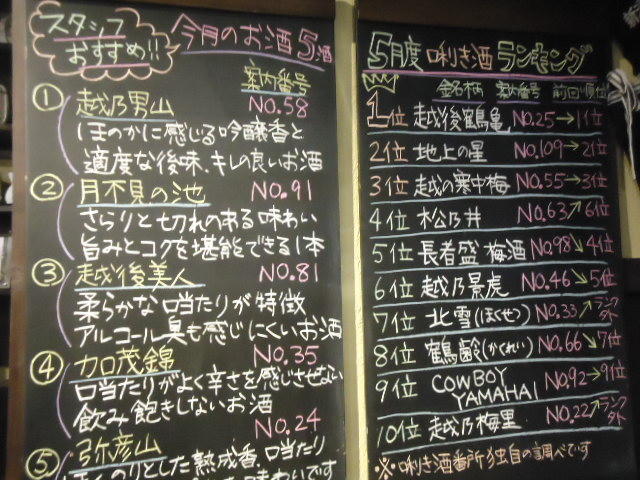 スタッフ
おすすめ!!
今月のお酒5酒
案内番号
① 越乃男山 NO.58
ほのかに感じる吟醸香と
適度な後味、キレの良いお酒
② 月不見の池 NO.91
さらりと切れのある味わい
旨みとコクを堪能できる1本
③ 越後美人 NO.81
柔らかな口当たりが特徴
アルコール臭も感じにくいお酒
④ 加茂錦 NO.35
口当たりがよく辛さを感じさせない
飲み飽きしないお酒
⑤ 弥彦山 NO.24
ほんのりとした熟成香、口当たり
味わいです
5月度 唎き酒ランキング
銘柄 案内番号 前回順位
1位 越後鶴亀 NO.25→1位
2位 地上の星 NO.109→2位
3位 越の寒中梅 NO.55→3位
4位 松乃井 NO.63↗6位
5位 長者盛 梅酒 NO.98↘4位
6位 越乃景虎 NO.46↘5位
7位 北雪(ほくせつ) NO.33↗ランク外
8位 鶴齢(かくれい) NO.66↘7位
9位 COWBOY YAMAHAI NO.92→9位
10位 越乃梅里 NO.22↗ランク外
※唎き酒番所独自の調べです